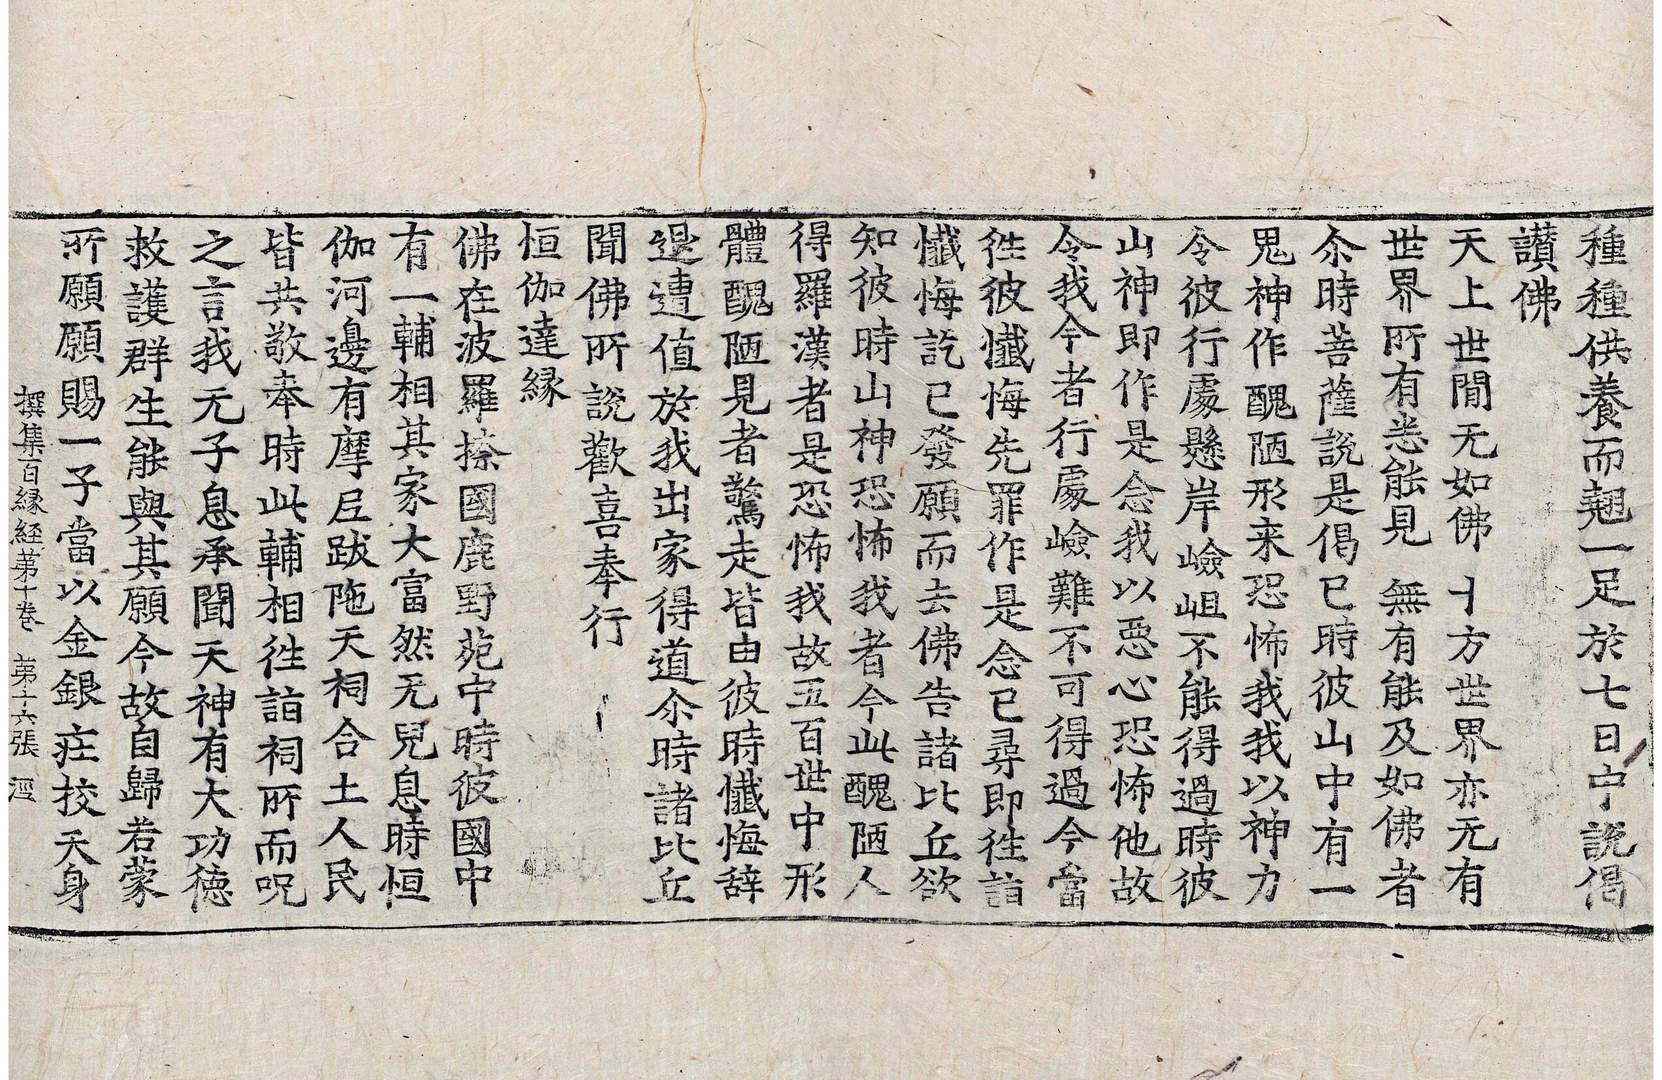 種種供養而翹一足於七日中說偈
讃佛
天上世間无如佛　十方世界亦无有
世界所有悉能見　無有能及如佛者
尒時菩薩說是偈已時彼山中有一
鬼神作醜陋形来恐怖我我以神力
令彼行處懸岸嶮岨不能得過時彼
山神即作是念我以惡心恐怖他故
令我今者行處嶮難不可得過今當
徃彼懺悔先罪作是念已尋即徃詣
懺悔訖已發願而去佛告諸比丘欲
知彼時山神恐怖我者今此醜陋人
得羅漢者是恐怖我故五百世中形
體醜陋見者驚走皆由彼時懺悔辞
退遭值於我出家得道尒時諸比丘
聞佛所說歡喜奉行
恒伽達縁
佛在波羅捺國鹿野苑中時彼國中
有一輔相其家大富然无兒息時恒
伽河邊有摩尼跋陁天祠合土人民
皆共敬奉時此輔相徃詣祠所而呪
之言我无子息承聞天神有大功徳
救護群生能與其願今故自歸若蒙
所願願賜一子當以金銀庄校天身
撰集百縁経苐十卷　苐十六張　涇